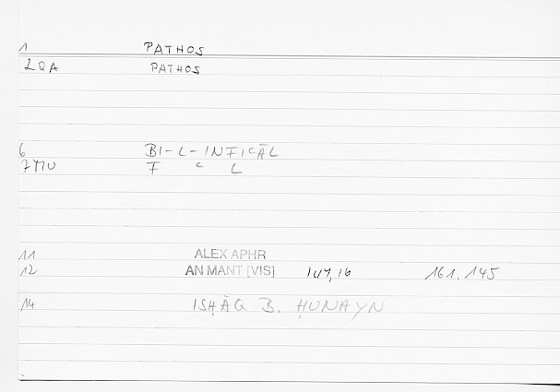 1 PATHOS
2QA PATHOS
6 BI-L-INFIʿĀL
F ʿ L
11 ALEX APHR
12 AN MANT [VIS] 161.145
14 ISḤĀQ B. ḤUNAYN